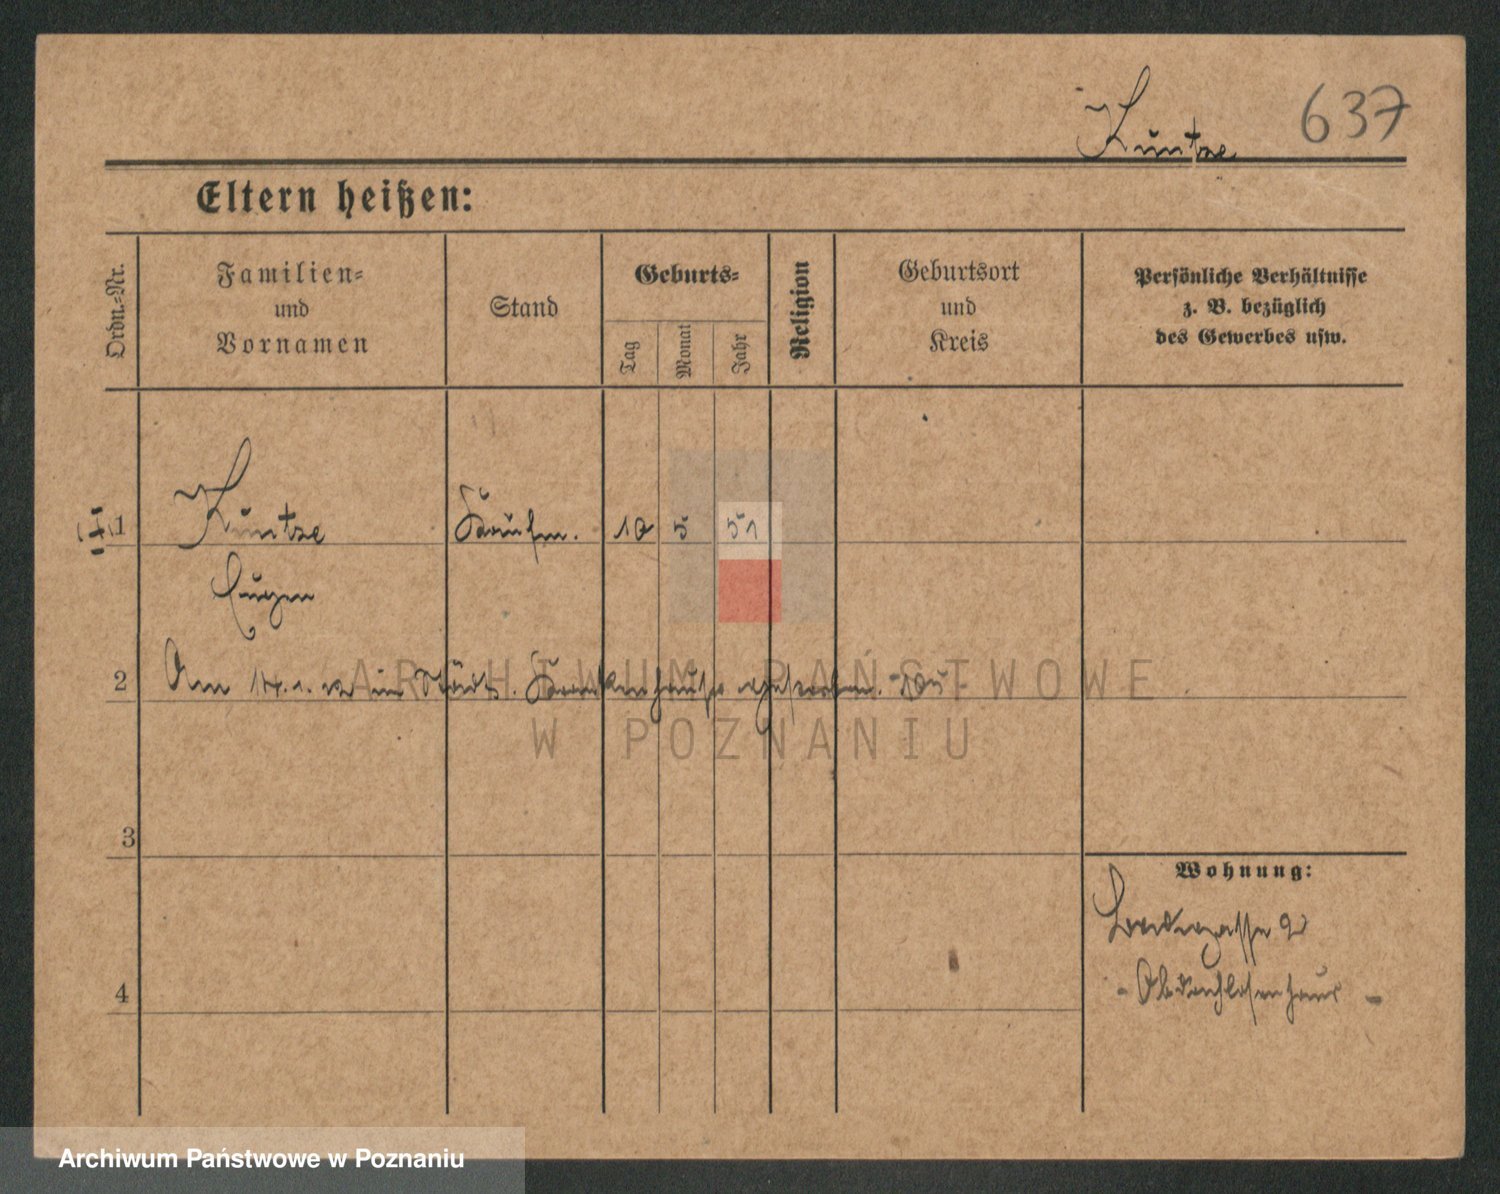 Kuntze 637
Eltern heißen:
Ordn.-Nr.
Familien-
und
Vornamen
Stand
Geburts-
Tag
Monat
Jahr
Religion
Geburtsort
und
Kreis
Persönliche Verhältnisse
z. B. bezüglich
des Gewerbes usw.
1 Kuntze Kaufm. 10 5 51
Eugen
2 Am 14. 1. im Städt. Krankenhause
3
4
Wohnung:
- Obdachlosenhaus -
ARCHIWUM PAŃSTWOWE
W POZNANIU
Archiwum Państwowe w Poznaniu